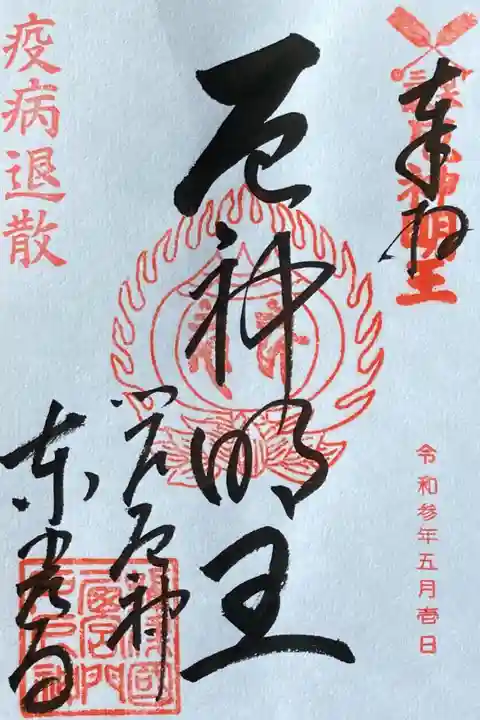 奉拝
厄神明王
令和参年五月壱日
厄神明王
門戸厄神
東光寺
疫病退散